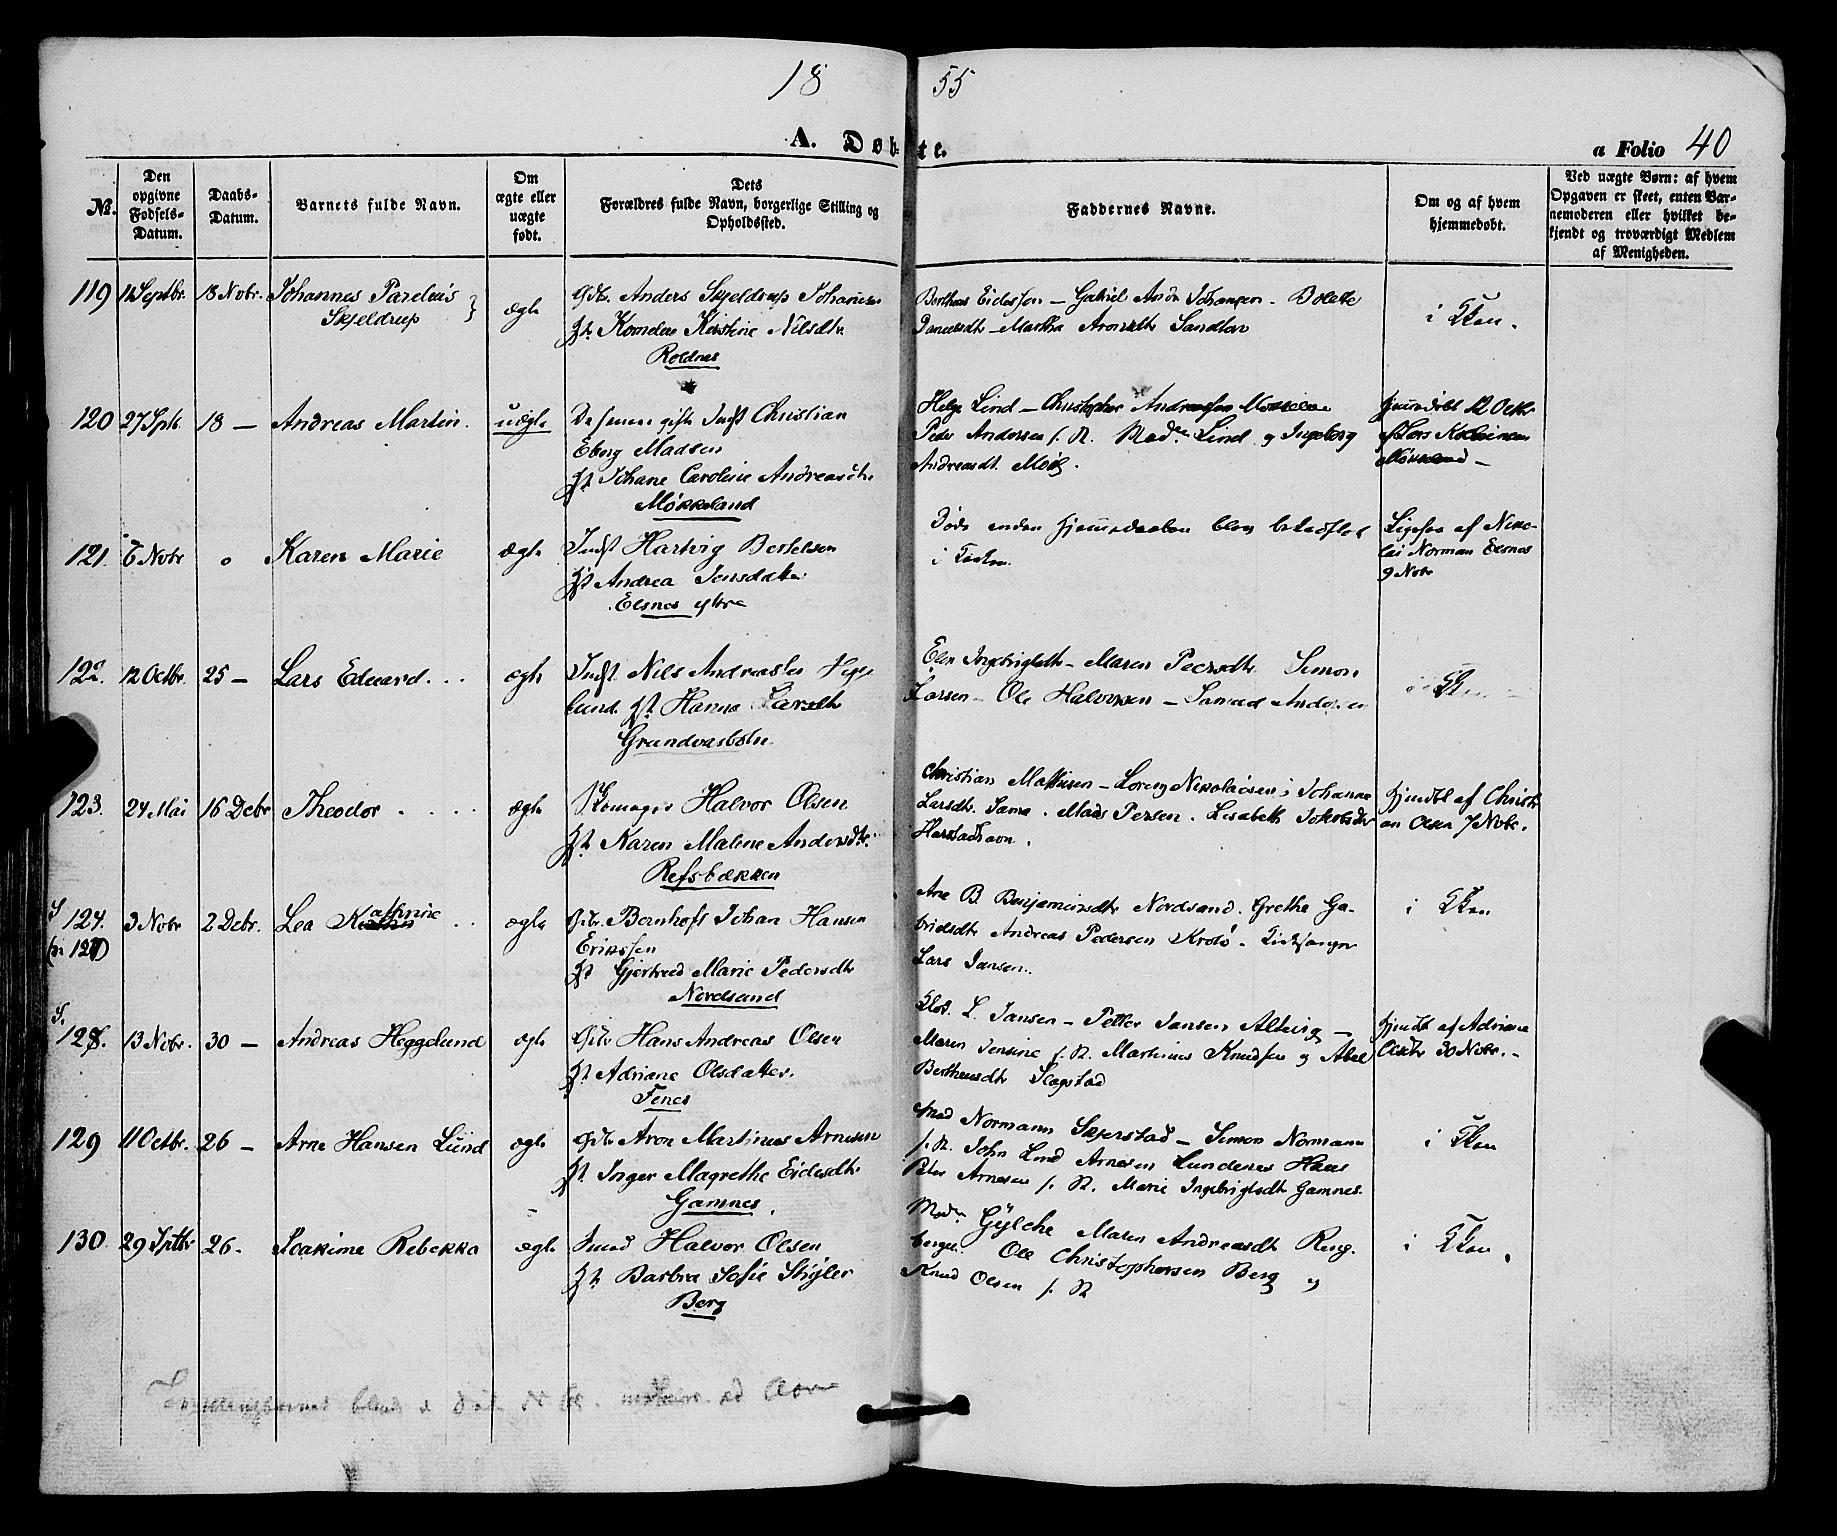 1855
A. Døbte.
a Folio 40
No.
Den opgivne Fødsels-Datum.
Daabs-Datum.
Barnets fulde Navn.
Om ægte eller uægte født.
Dets Forældres fulde Navn, borgerlige Stilling og Opholdssted.
Faddernes Navne.
Om og af hvem hjemmedøbt.
Ved uægte Børn: af hvem Opgaven er skeet, enten Barnemoderen eller hvilket bekjendt og troværdigt Medlem af Menigheden.
119 Septbr. 18 Novbr. Johannes Parelius
Skjeldrup
ægte
Anders Skjeldrup Johansen
Hst. Kornelia Kirstine Nilsdtr
Roldnes
Gabriel Andr Johansen - Bolette
Danielsdtr - Martha Sandtor
i Kken.
120 27 Sptb 18 - Andreas Martin.
uægte
gifte Indst Christian
Eberg Madsen
Johane Caroline Andreasdtr
Møkkeland
Helge Lind - Christopher Andreassen
Peder Andersen s. St. Mad. Lind og Ingeborg
Andreasdt.
hjemdøbt 12 Octbr
af Lars
121. 6 Novbr o Karen Marie
ægte
Indst Hartvig Bertelsen
Hst Andrea Jensdatter
Elsnes ytre
Døde enden Hjemmedaaben blev bekræftet
i Kirken.
Ligesaa af Nikolai Norman Elsnes
9 Novbr
122. 12 Octbr. 25 - Lars Edvard . . .
ægte
Indst. Nils Andreas
lund. Hst. Hanna Larsdtr
Grundvasbotn.
Elen Ingebrigtsdtr - Maren Pedersdtr Simon
Larsen - Ole Halvorsen - Andersen
Kken
123. 24 Mai 16 Debr Theodor . . . .
ægte
Halvor Olsen
Hst Karen Malene Andersdtr.
Refsbækken
Christian Mathisen - Lorenz Nikolaisen, Johanna
Larsdtr. Sama. Mads Persen. Lisabeth Jakobsdtr
Harstadhavn.
hjemdbt af Christian Olsen 7 Novbr.
S 124. 3 Novbr 2 Debr. Lea Kathrine . .
127)
ægte
Gbr. Bernhoft Johan Hansen
Erikssen
Hst Gjertrud Marie Pedersdtr
Nordsand
Ane B. Benjaminsdtr Nordsand. Grethe Gabrielsdtr Andreas Pedersen Kirkesanger
Lars Jansen.
i Kken
S. 128. 13 Novbr. 30 - Andreas Heggelund
ægte
Gbr Hans Andreas Olsen
Hst Adriane Olsdatter.
Fenes
Klok. L. Jansen - Petter Jansen Altevig -
Maren Jensine s. St. Martinus Knudsen og Abel
Bertheusdtr Slagstad
hjemdbt af Adriane
Olsdtr 30 Novbr. -
129 11 Octbr. 26 - Arne Hansen Lund
ægte
Gbr Aron Martinus Arnesen
Hst Inger Magrethe Eidesdtr
Gamnes.
Normann Skjerstad - Simon Normann
s. St. John Lind Arnesen Lundenes Hans
Peter Arnesen s. St. Marie Ingebrigtsdt Gamnes.
i Kken
130 29 Sptbr 26. Joakime Rebekka
ægte
Smed Halvor Olsen
Hst Barbra Sofie Stigler
Berg
Madm Gylche Maren Andreasdt Ring-
bergen. Ole Christophersen Berg og
Knud Olsen s. St
i Kken.